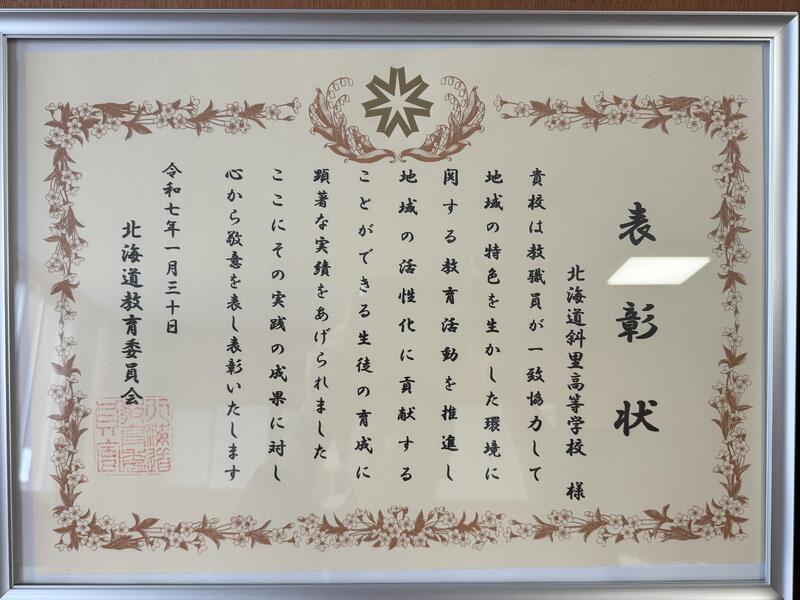 表彰状
北海道斜里高等学校 様
貴校は教職員が一致協力して
地域の特色を生かした環境に
関する教育活動を推進し
地域の活性化に貢献する
ことができる生徒の育成に
顕著な実績をあげられました
ここにその実践の成果に対し
心から敬意を表し表彰いたします
令和七年一月三十日
北海道教育委員会